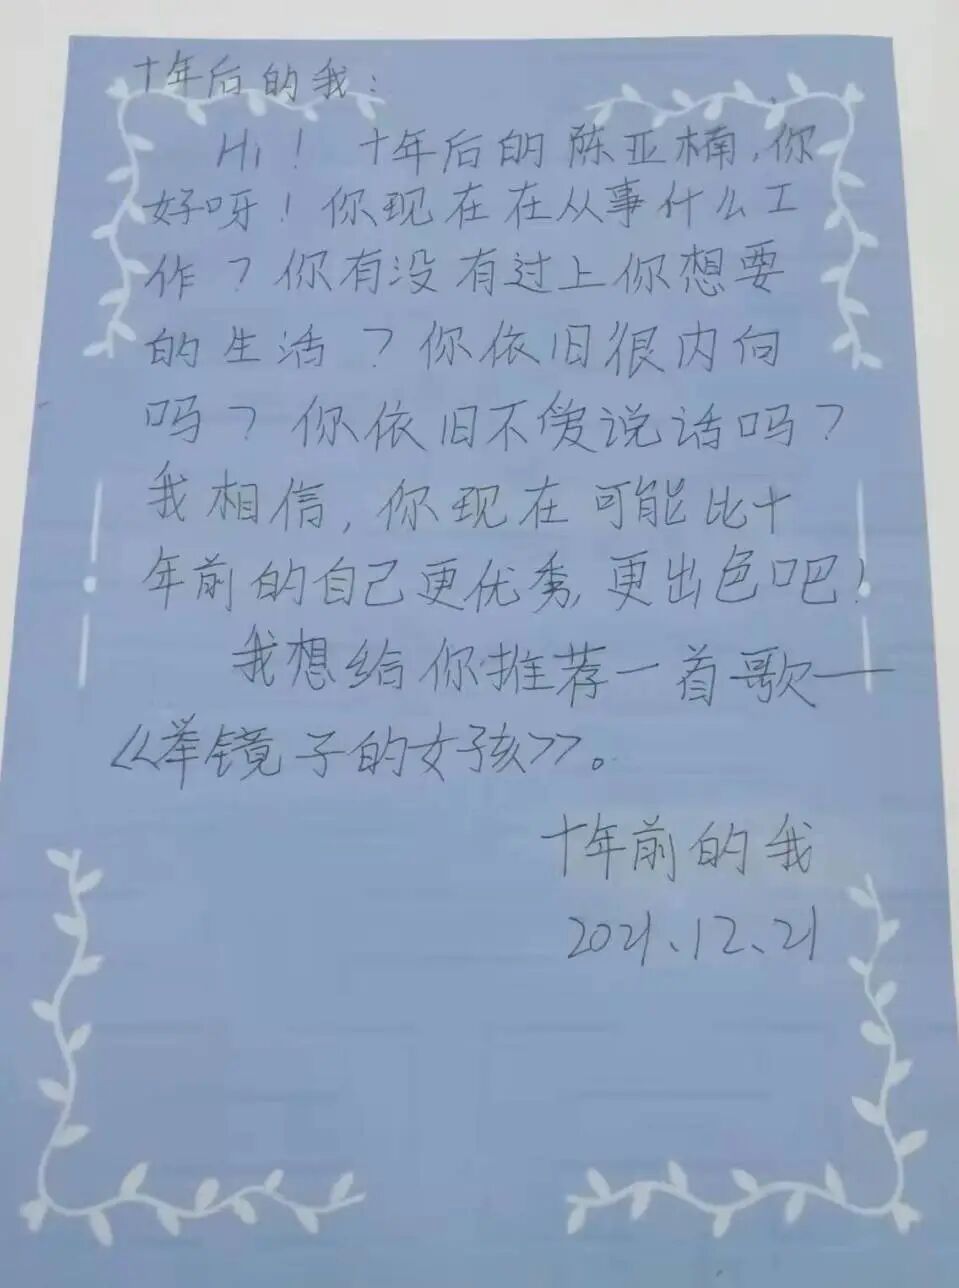 十年后的我：
Hi！十年后的陈亚楠，你
好呀！你现在在从事什么工
作？你有没有过上你想要
的生活？你依旧很内向
吗？你依旧不爱说话吗？
我相信，你现在可能比十
年前的自己更优秀，更出色吧！
我想给你推荐一首歌——
《举镜子的女孩》。
十年前的我
2021、12、21